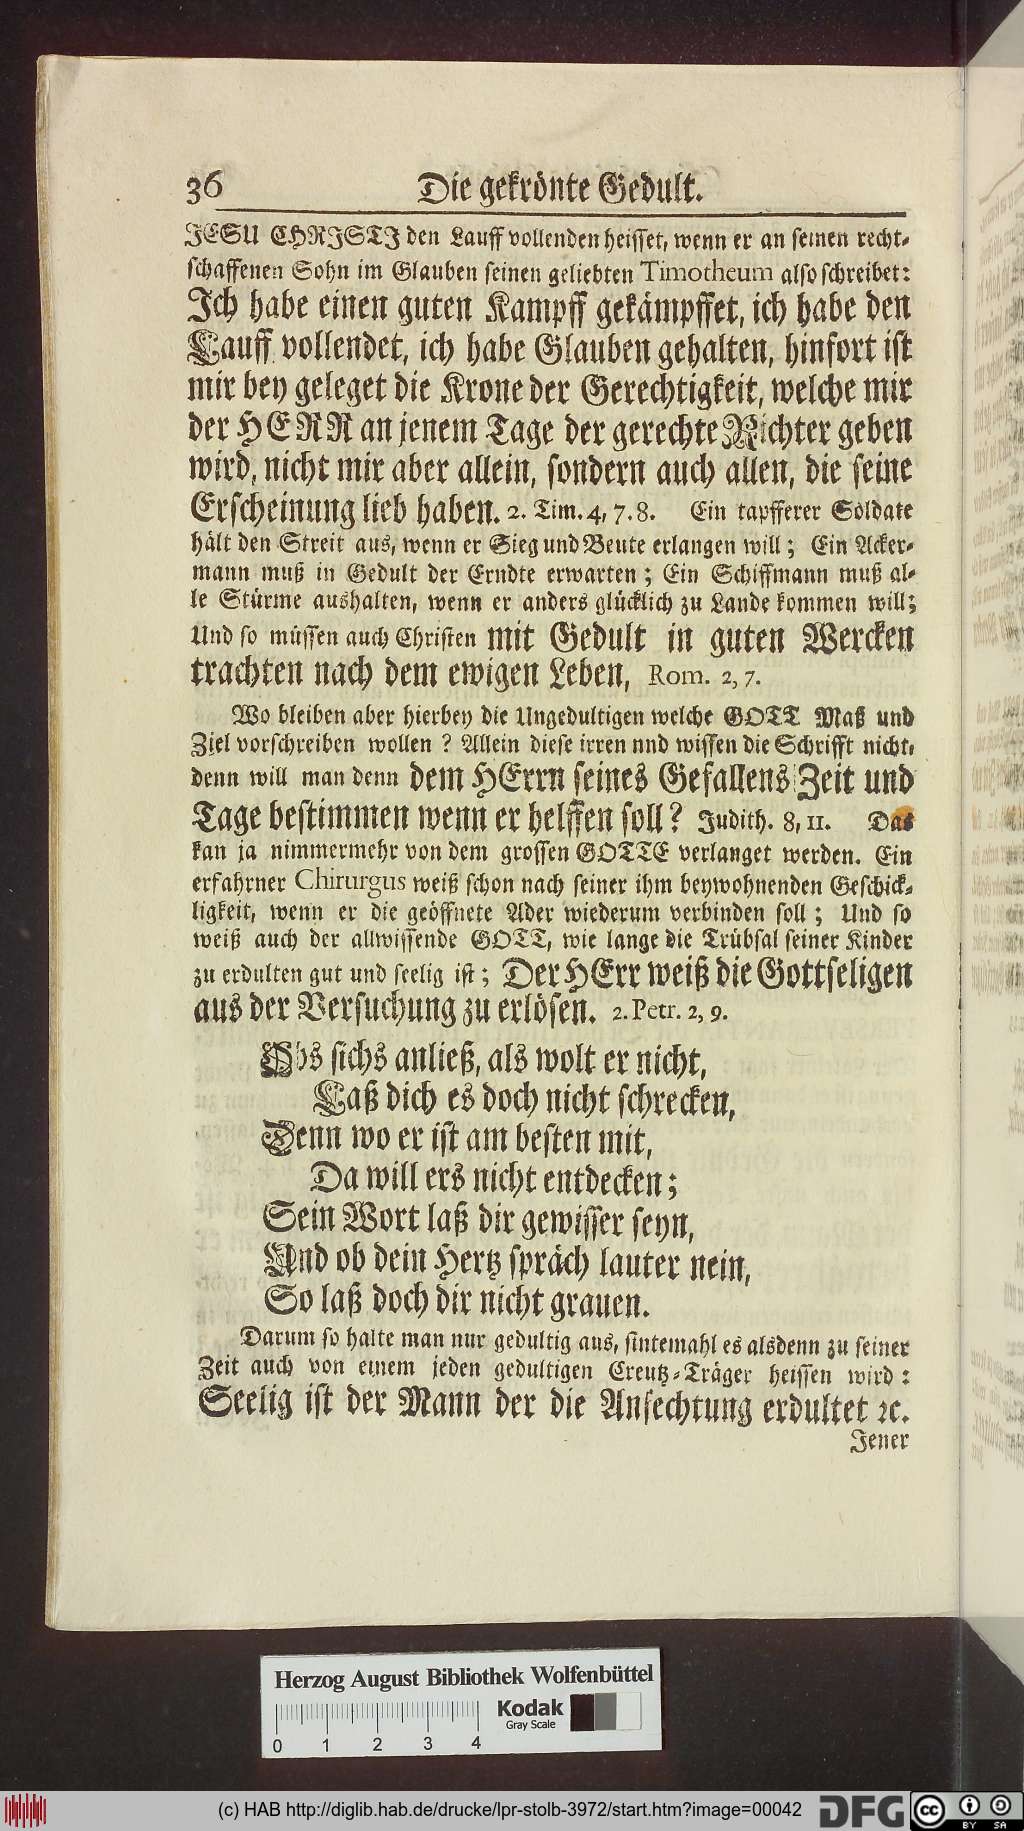 36 Die gekrönte Gedult.
JESU CHRISTJ den Lauff vollenden heisset, wenn er an seinen recht-
schaffenen Sohn im Glauben seinen geliebten Timotheum also schreibet:
Jch habe einen guten Kampff gekämpffet, ich habe den
Lauff vollendet, ich habe Glauben gehalten, hinfort ist
mir bey geleget die Krone der Gerechtigkeit, welche mir
der HERR an jenem Tage der gerechte Richter geben
wird, nicht mir aber allein, sondern auch allen, die seine
Erscheinung lieb haben. 2. Tim. 4, 7. 8. Ein tapfferer Soldate
hält den Streit aus, wenn er Sieg und Beute erlangen will; Ein Acker-
mann muß in Gedult der Erndte erwarten; Ein Schiffmann muß al-
le Stürme aushalten, wenn er anders glücklich zu Lande kommen will;
Und so müssen auch Christen mit Gedult in guten Wercken
trachten nach dem ewigen Leben, Rom. 2, 7.
Wo bleiben aber hierbey die Ungedultigen welche GOTT Maß und
Ziel vorschreiben wollen? Allein diese irren nnd wissen die Schrifft nicht,
denn will man denn dem HErrn seines Gefallens Zeit und
Tage bestimmen wenn er helffen soll? Judith. 8, 11. Das
kan ja nimmermehr von dem grossen GOTTE verlanget werden. Ein
erfahrner Chirurgus weiß schon nach seiner ihm beywohnenden Geschick-
ligkeit, wenn er die geöffnete Ader wiederum verbinden soll; Und so
weiß auch der allwissende GOTT, wie lange die Trübsal seiner Kinder
zu erdulten gut und seelig ist; Der HErr weiß die Gottseligen
aus der Versuchung zu erlösen. 2. Petr. 2, 9.
Obs sichs anließ, als wolt er nicht,
Laß dich es doch nicht schrecken,
Denn wo er ist am besten mit,
Da will ers nicht entdecken;
Sein Wort laß dir gewisser seyn,
Und ob dein Hertz spräch lauter nein,
So laß doch dir nicht grauen.
Darum so halte man nur gedultig aus, sintemahl es alsdenn zu seiner
Zeit auch von einem jeden gedultigen Creutz-Träger heissen wird:
Seelig ist der Mann der die Anfechtung erdultet ꝛc.
Jener
Herzog August Bibliothek Wolfenbüttel
Kodak
Gray Scale
0 1 2 3 4
(c) HAB http://diglib.hab.de/drucke/lpr-stolb-3972/start.htm?image=00042
DFG
cc BY SA